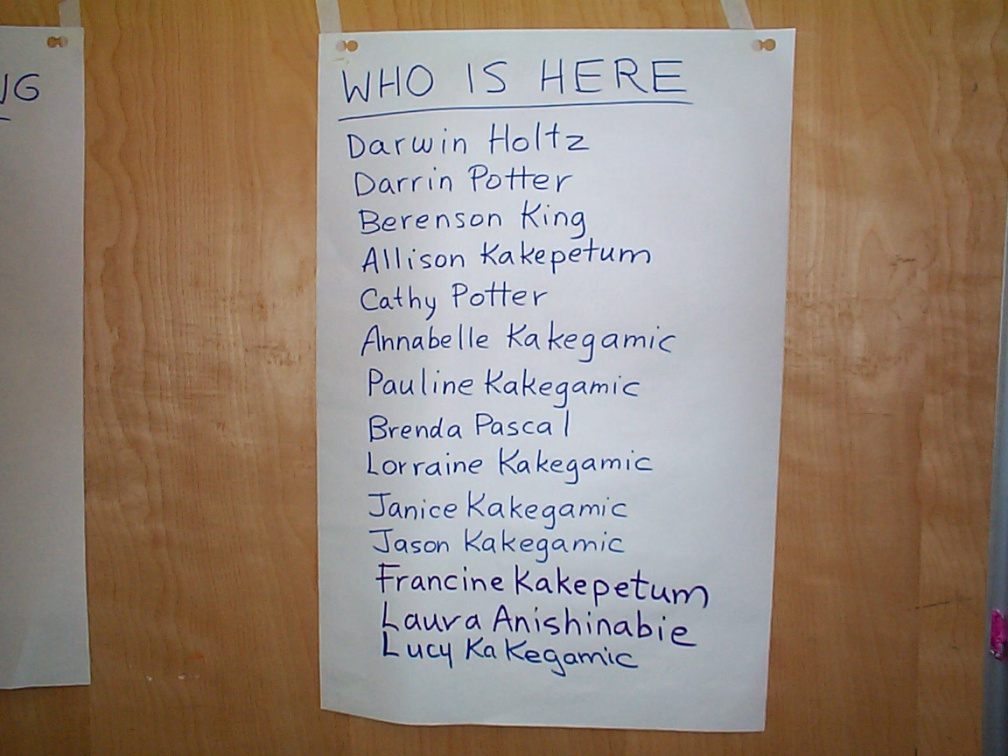 NG
WHO IS HERE
Darwin Holtz
Darrin Potter
Berenson King
Allison Kakepetum
Cathy Potter
Annabelle Kakegamic
Pauline Kakegamic
Brenda Pascal
Lorraine Kakegamic
Janice Kakegamic
Jason Kakegamic
Francine Kakepetum
Laura Anishinabie
Lucy Kakegamic